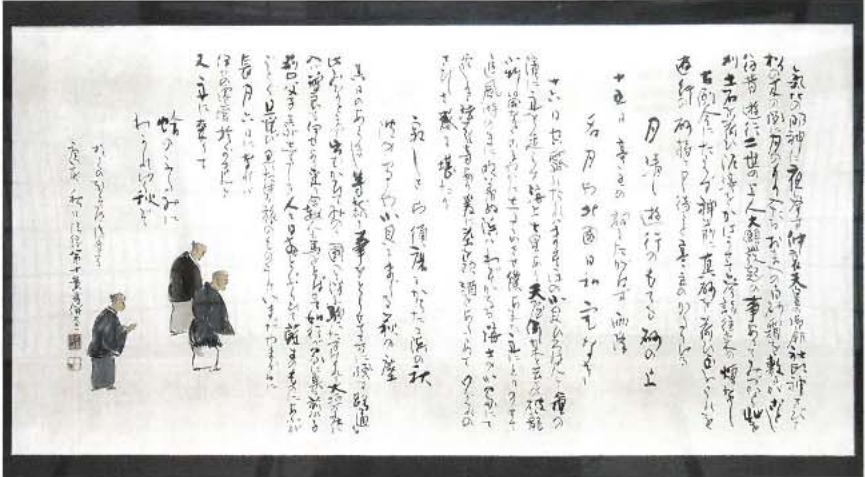 気比の明神に夜参す仲哀天皇の御廟社頭神さびて
松の木の間に月のもり入たるおまへの白砂霜を敷るがごとし
往昔遊行二世の上人大願発起の事ありてみづから草を
刈土石を荷ひ泥渟をかはかせて参詣往来の煩なし
古例今にたえず神前に真砂を荷ひ給ふこれを
遊行の砂持と申侍ると亭主のかたりける
月清し遊行のもてる砂の上
十五日亭主の詞にたかはす雨降
名月や北国日和定なき
十六日空霽たれはますほの小貝ひろはんと種の
濱に舟を走す海上七里あり天屋何某と云もの破籠
小竹筒なとこまやかにしたゝめさせ僕あまた舟にとりのせて
追風時のまに吹着ぬ浜はわつかなる海士の小家にて
侘しき法花寺あり爰に茶を飲酒をあたゝめて夕くれの
さひしさ感に堪たり
寂しさや須磨にかちたる浜の秋
波の間や小貝にましる萩の塵
其日のあらまし等栽に筆をとらせて寺に残す露通も
此みなとまて出むかひてみのゝ国へと伴ふ駒にたすけられて大垣の庄に
入は曽良も伊せより来り合越人も馬をとはせて如行か家に集る前川子
荊口父子其外したしき人々日夜とふらひて蘇生のものにあふか
ことく且悦ひ且いたはる旅のものうさもいまたやまさるに
長月六日になれは
伊せの遷宮おかまんと
又舟に乗て
蛤のふたみに
わかれ行秋そ